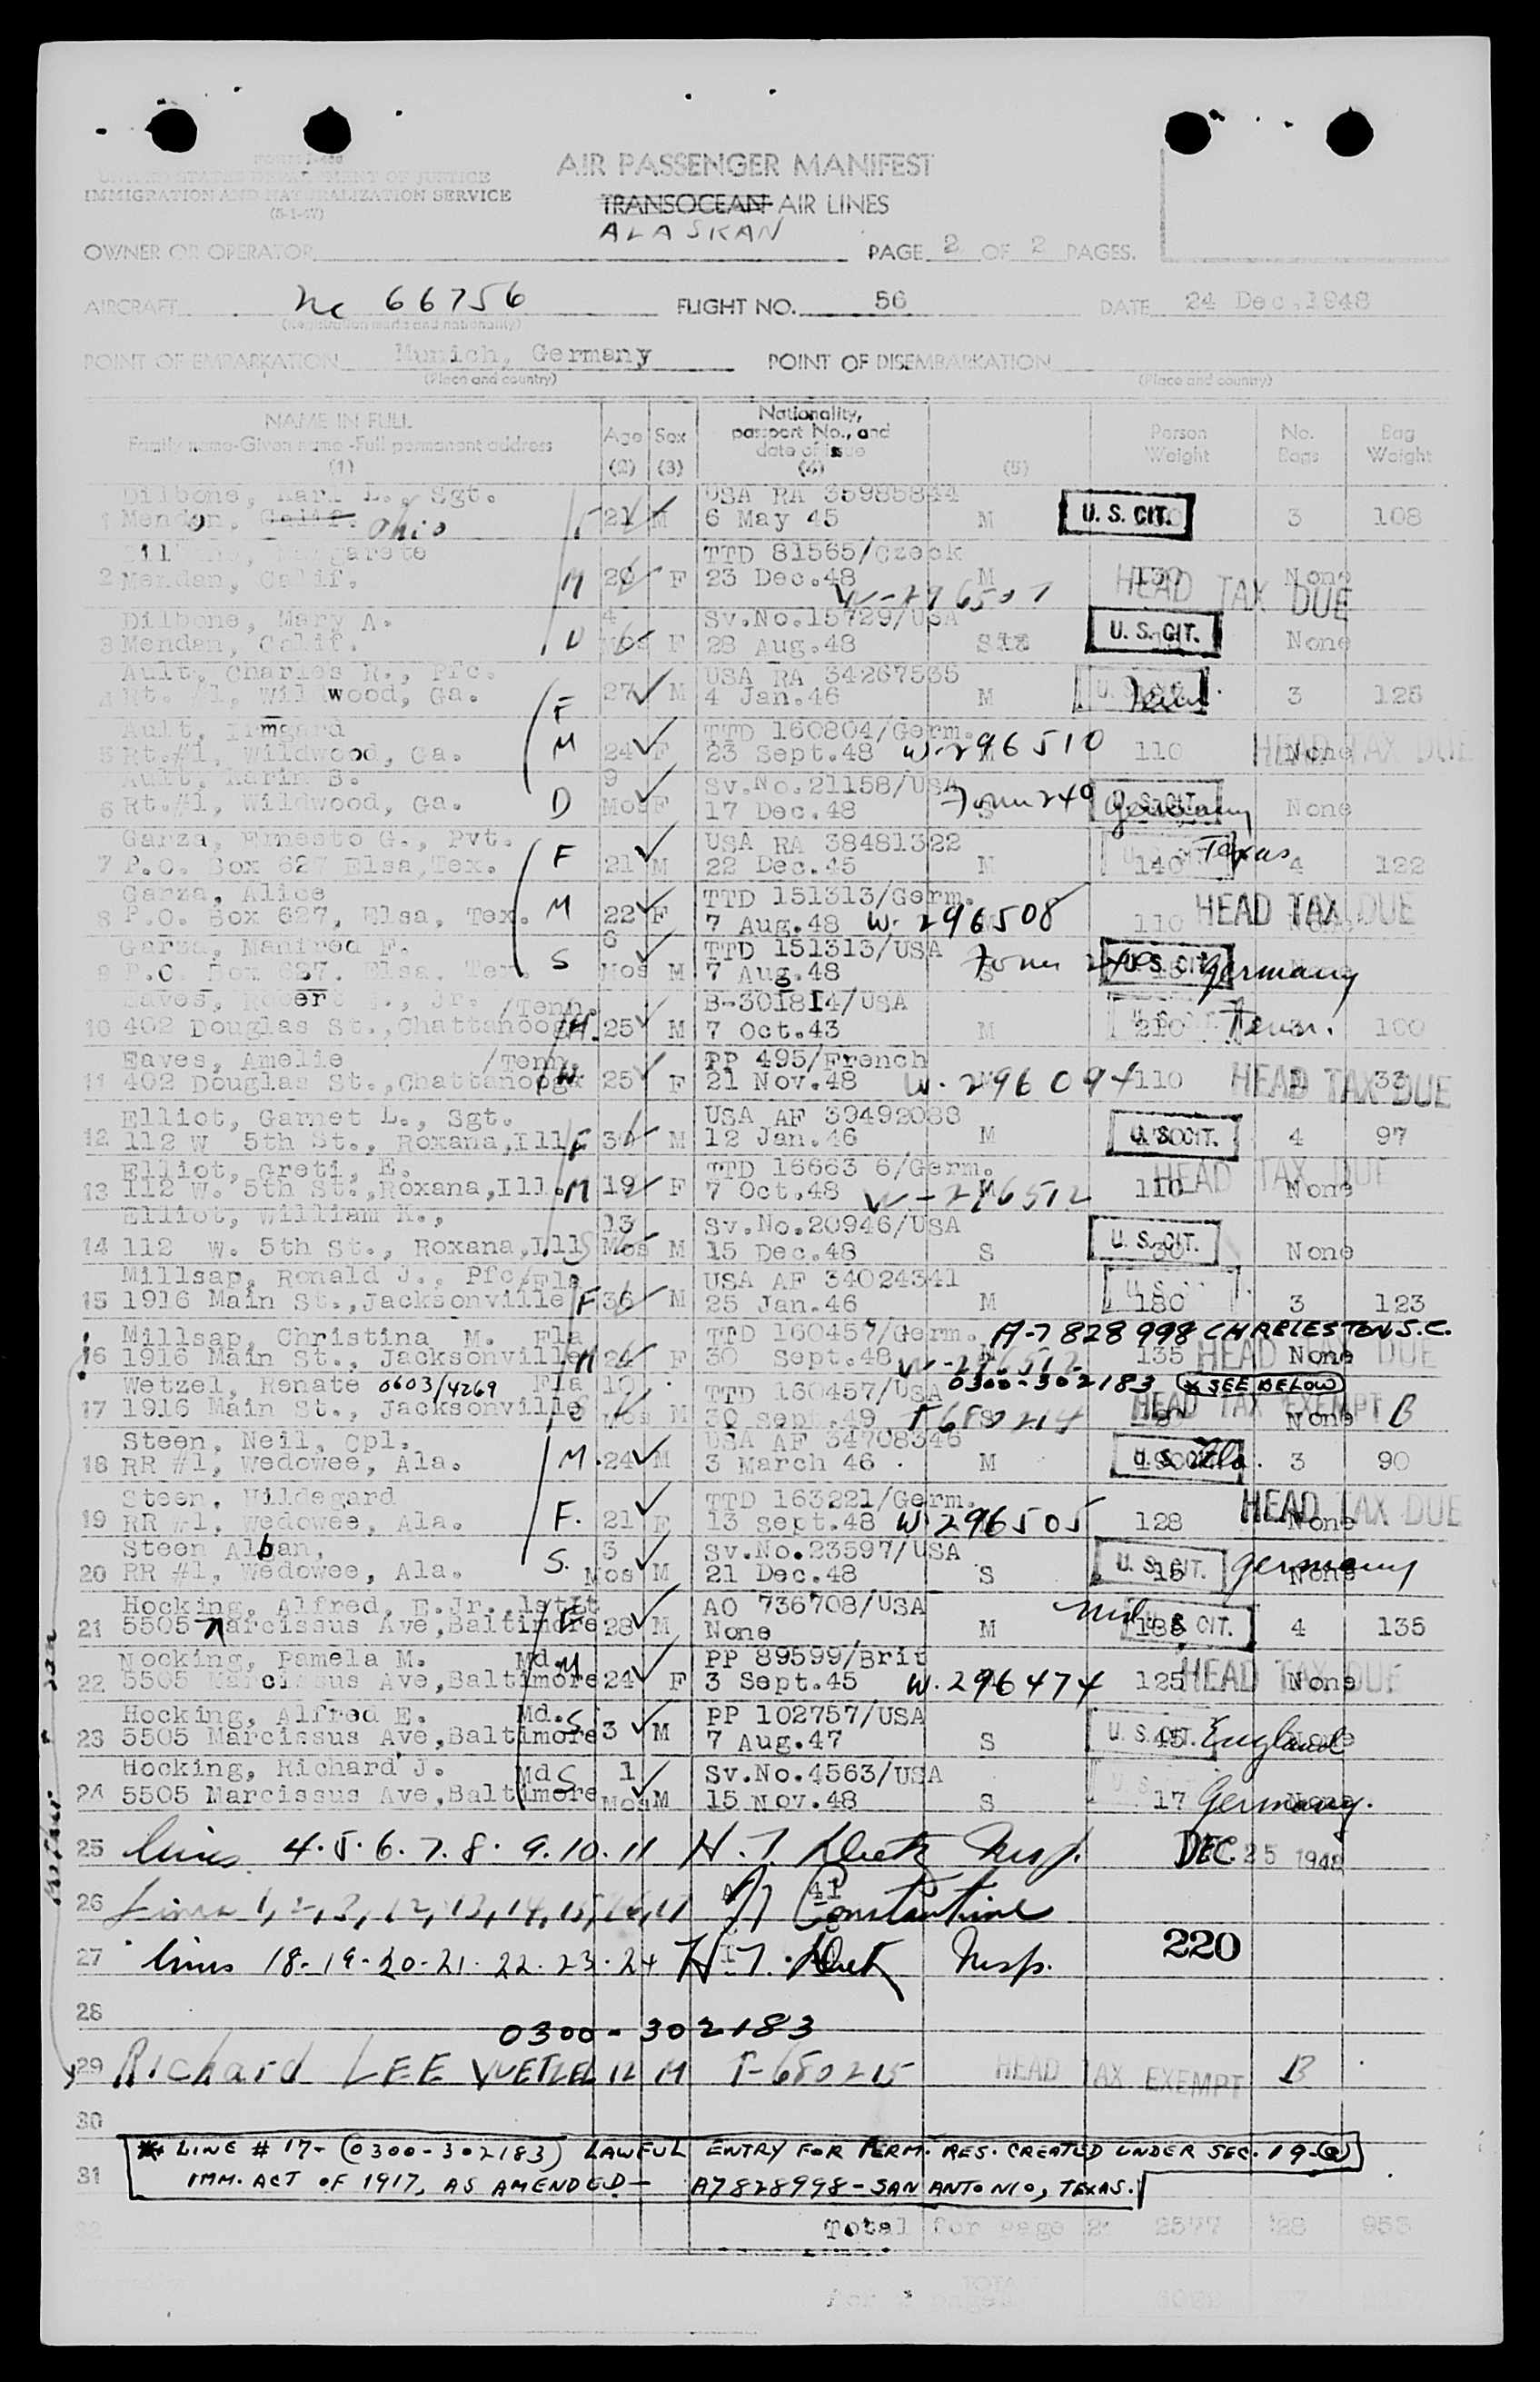 FORM I-466
UNITED STATES DEPARTMENT OF JUSTICE
IMMIGRATION AND NATURALIZATION SERVICE
(5-1-47)
AIR PASSENGER MANIFEST
TRANSOCEAN AIR LINES
ALASKAN
OWNER OR OPERATOR PAGE 2 OF 2 PAGES.
AIRCRAFT Nc 66756 FLIGHT NO. 56 DATE 24 Dec.1948
(Registration marks and nationality)
POINT OF EMBARKATION Munich, Germany POINT OF DISEMBARKATION
(Place and country) (Place and country)
NAME IN FULL Age Sex Nationality, passport No., and date of issue Person Weight No. Bags Bag Weight
Family name-Given name-Full permanent address
(1) (2) (3) (4) (5)
Dilbone, Karl L., Sgt. USA RA 35985844
1 Mendon, Calif. Ohio F 21 M 6 May 45 M U. S. CIT. 3 108
Dilbone, Margarete TTD 81565/Czeck
2 Mendan, Calif. M 26 F 23 Dec.48 M W-296507 130 None HEAD TAX DUE
Dilbone, Mary A. 4 Sv.No.15729/USA
3 Mendan, Calif. D Mos F 28 Aug.48 S U. S. CIT. None
Ault, Charles R., Pfc. USA RA 34267535
4 Rt. #1, Wildwood, Ga. F 27 M 4 Jan.46 M U. S. CIT. Tenn. 3 125
Ault, Irmgard TTD 160804/Germ.
5 Rt.#1, Wildwood, Ga. M 24 F 23 Sept.48 W-296510 M 110 None HEAD TAX DUE
Ault, Karin S. 9 Sv.No.21158/USA
6 Rt.#1, Wildwood, Ga. D Mos F 17 Dec.48 S Form 240 U. S. CIT. Germany None
Garza, Ernesto G., Pvt. USA RA 38481322
7 P.O. Box 627 Elsa,Tex. F 21 M 22 Dec.45 M U. S. CIT. 140 Texas 4 122
Garza, Alice TTD 151313/Germ.
8 P.O. Box 627, Elsa, Tex. M 22 F 7 Aug.48 W. 296508 110 None HEAD TAX DUE
Garza, Manfred F. 6 TTD 151313/USA
9 P.O. Box 627. Elsa, Tex. S Mos M 7 Aug.48 S Form 240 U. S. CIT. Germany
Eaves, Robert, Jr. /Tenn. B-301814/USA
10 402 Douglas St.,Chattanooga H. 25 M 7 Oct.43 M U. S. CIT. 210 Tenn. 3 100
Eaves, Amelie /Tenn. PP 495/French
11 402 Douglas St.,Chattanooga W. 25 F 21 Nov.48 W. 296094 110 33 HEAD TAX DUE
Elliot, Garnet L., Sgt. USA AF 39492088
12 112 W 5th St., Roxana,Ill F 30 M 12 Jan.46 M U. S. CIT. 4 97
Elliot, Greti, E. TTD 16663 6/Germ.
13 112 W. 5th St.,Roxana,Ill. M 19 F 7 Oct.48 M W-296512 110 None HEAD TAX DUE
Elliot, William K., 13 Sv.No.20946/USA
14 112 W. 5th St., Roxana,Ill S Mos M 15 Dec.48 S U. S. CIT. 30 None
Millsap, Ronald J., Pfc/Fla USA AF 34024341
15 1916 Main St.,Jacksonville F 36 M 25 Jan.46 M U. S. CIT. 180 3 123
Millsap, Christina M. Fla TTD 160457/Germ. A-7 828 998 CHARLESTON S.C.
16 1916 Main St., Jacksonville M 24 F 30 Sept.48 135 None HEAD TAX DUE
Wetzel, Renate 0603/4269 Fla 10 TTD 160457/USA 0300-302183 * SEE BELOW
17 1916 Main St., Jacksonville Mos M 30 Sept.49 T680214 S None HEAD TAX EXEMPT B
Steen, Neil, Cpl. USA AF 34708346
18 RR #1, Wedowee, Ala. M. 24 M 3 March 46 M U. S. CIT. Ala. 3 90
Steen, Hildegard TTD 163221/Germ.
19 RR #1, Wedowee, Ala. F. 21 F 13 sept.48 W. 296505 128 None HEAD TAX DUE
Steen Alban, 3 Sv.No.23597/USA
20 RR #1, Wedowee, Ala. S. Mos M 21 Dec.48 S U. S. CIT. 15 Germany None
Hocking, Alfred, E.Jr.,1stLt AO 736708/USA
21 5505 Narcissus Ave,Baltimore F. 28 M None M Md. U. S. CIT. 4 135
Nocking, Pamela M. Md. PP 89599/Brit
22 5505 Marcissus Ave,Baltimore M 24 F 3 Sept.45 W. 296474 125 None HEAD TAX DUE
Hocking, Alfred E. Md. PP 102757/USA
23 5505 Marcissus Ave,Baltimore S 3 M 7 Aug.47 S U. S. CIT. 45 England None
Hocking, Richard J. Md 1 Sv.No.4563/USA
24 5505 Marcissus Ave,Baltimore S Mos M 15 Nov.48 S 17 Germany. None
25 lines 4.5.6.7.8.9.10.11 H.T. Insp. DEC 25 1948
26 Lines 1,2,3,12,13,14,15,16,17 Constantine
27 lines 18-19-20-21-22-23-24 H.T. Insp. 220
28
0300-302183
29 Richard LEE WETZEL 12 M T-680215 HEAD TAX EXEMPT B
30
* LINE # 17- (0300-302183) LAWFUL ENTRY FOR PERM. RES. CREATED UNDER SEC. 19-(a)
31 IMM. ACT OF 1917, AS AMENDED - A7828998-SAN ANTONIO, TEXAS.
32 Total for page 2: 2577 28 953